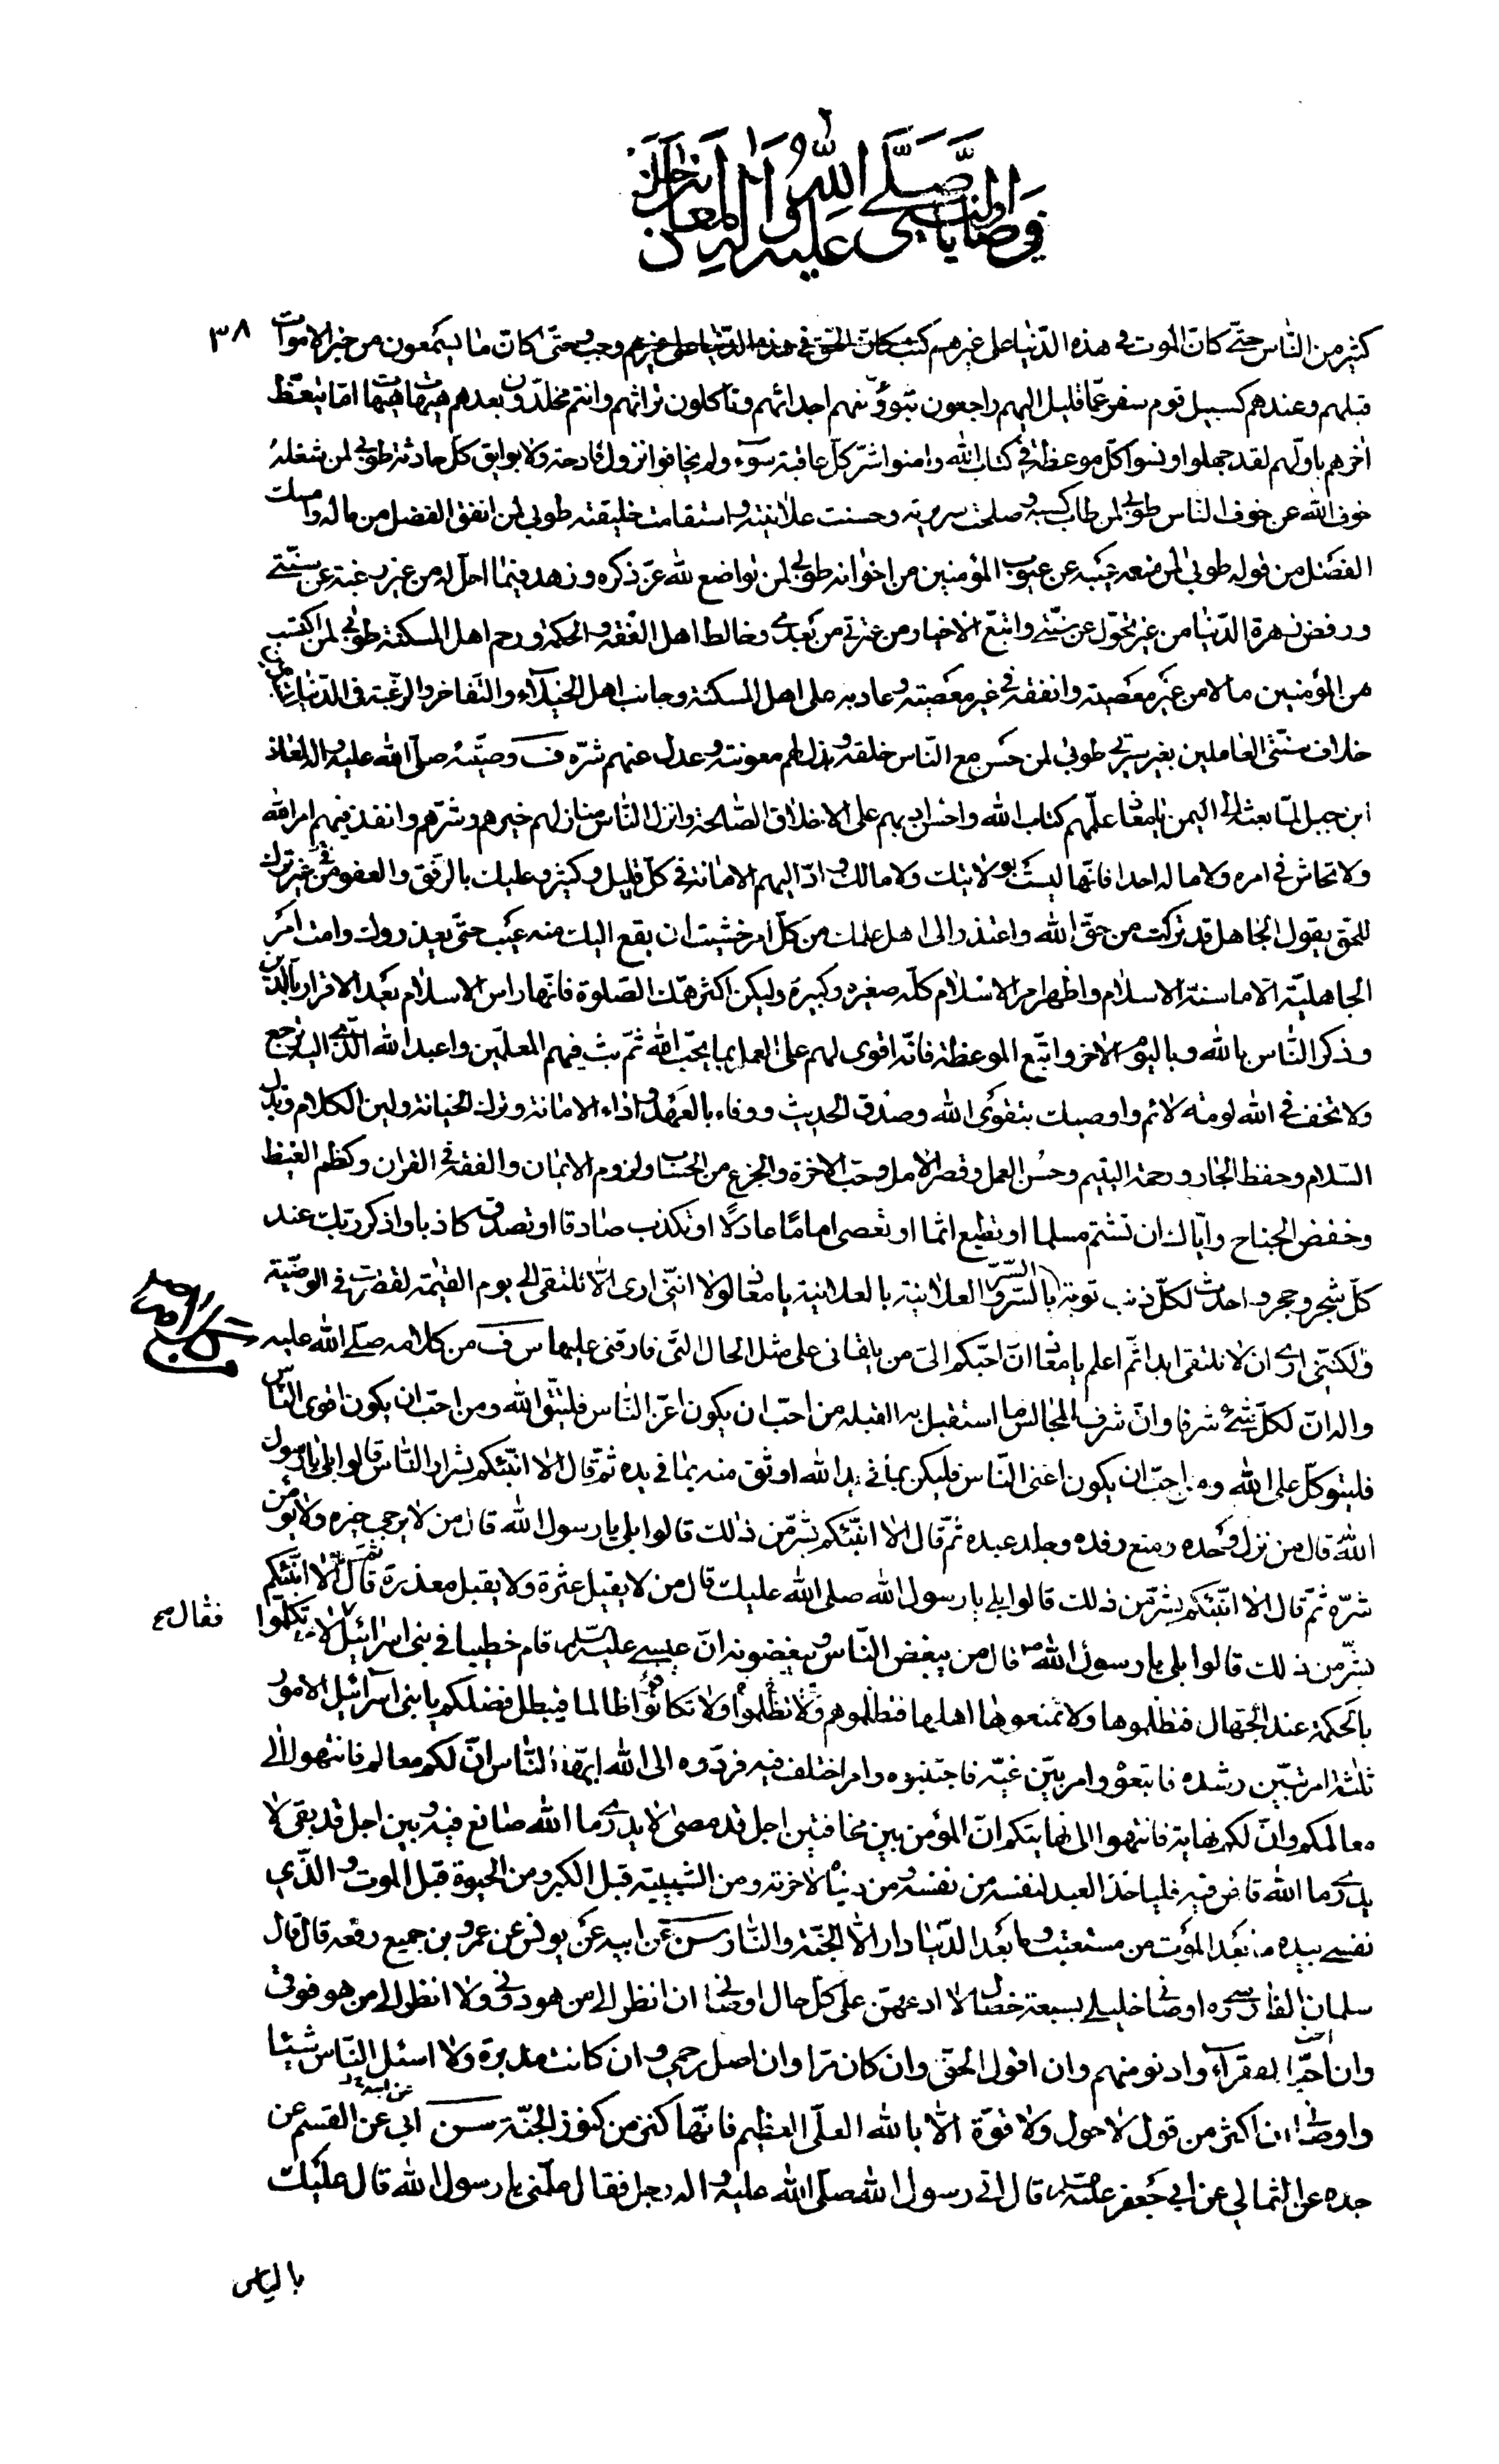 في وصايا النبي صلى الله عليه وآله
٣٨
كثير من الناس حتى كان الموت في هذه الدنيا على غيرهم كتب كان الحق في هذه الدنيا على غيرهم وجب وحتى كان ما يسمعون من خبر الاموات
قبلهم وعندهم كسبيل قوم سفر عما قليل اليهم راجعون تبوؤنهم اجداثهم وتاكلون تراثهم وانتم مخلدون بعدهم هيهات هيهات اما يتعظ
اخرهم باولهم لقد جهلوا ونسوا كل موعظة في كتاب الله وامنوا شر كل عاقبة سوء ولم يخافوا نزول فادحة ولا بوايق كل حادثة طوبى لمن شغله
خوف الله عن خوف الناس طوبى لمن طاب كسبه وصلحت سريرته وحسنت علانيته واستقامت خليقته طوبى لمن انفق الفضل من ماله وامسك
الفضل من قوله طوبى لمن منعه عيبه عن عيوب المؤمنين من اخوانه طوبى لمن تواضع لله عز ذكره وزهد فيما احل له من غير رغبة عن سنتي
ورفض زهرة الدنيا من غير تحول عن سنتي واتبع الاخيار من عترتي من بعدي وخالط اهل الفقه والحكمة ورحم اهل المسكنة طوبى لمن اكتسب
من المؤمنين مالا من غير معصيته وانفقه في غير معصيته وعاد به على اهل المسكنة وجانب اهل الخيلاء والتفاخر والرغبة في الدنيا
خلاف سنتي العاملين بغير سيرتي طوبى لمن حسن مع الناس خلقه وبذل لهم معونته وعدل عنهم شره ف وصيته صلى الله عليه واله لمعاذ
ابن جبل لما بعثه الى اليمن يا معاذ علمهم كتاب الله واحسن ادبهم على الاخلاق الصالحة وانزل الناس منازلهم خيرهم وشرهم وانفذ فيهم امر الله
ولا تحاش في امره ولا ماله احدا فانها ليست بولايتك ولا مالك واد اليهم الامانة في كل قليل وكثير وعليك بالرفق والعفو في غير ترك
للحق يقول الجاهل قد تركت من حق الله واعتذر الى اهل عملك من كل امر خشيت ان يقع اليك منه عيب حتى يعذروك وامت امر
الجاهلية الا ما سنه الاسلام واظهر امر الاسلام كله صغيره وكبيره وليكن اكثر همك الصلوة فانها راس الاسلام بعد الاقرار بالدين
وذكر الناس بالله وباليوم الاخر واتبع الموعظة فانه اقوى لهم على العمل بما يحب الله ثم بث فيهم المعلمين واعبد الله الذي اليه ترجع
ولا تخف في الله لومة لائم واوصيك بتقوى الله وصدق الحديث ووفاء بالعهد واداء الامانة وترك الخيانة ولين الكلام وبذل
السلام وحفظ الجار ورحمة اليتيم وحسن العمل وقصر الامل وحب الاخرة والجزع من الحساب ولزوم الايمان والفقه في القران وكظم الغيظ
وخفض الجناح واياك ان تشتم مسلما او تطيع اثما او تعصي اماما عادلا او تكذب صادقا او تصدق كاذبا واذكر ربك عند
كل شجر وحجر واحدث لكل ذنب توبة بالسر السر والعلانية بالعلانية يا معاذ لولا انني ارى الا نلتقي الى يوم القيمة لقصرت في الوصية
ولكنني ارى ان لا نلتقي ابدا ثم اعلم يا معاذ ان احبكم الي من يلقاني على مثل الحال التي فارقني عليها س ف من كلامه صلى الله عليه
واله ان لكل شيء شرفا وان شرف المجالس ما استقبل به القبلة من احب ان يكون اعز الناس فليتق الله ومن احب ان يكون اقوى الناس
فليتوكل على الله ومن احب ان يكون اغنى الناس فليكن بما في يد الله اوثق منه بما في يده ثم قال الا انبئكم بشرار الناس قالوا بلى يا رسول
الله قال من نزل وحده ومنع رفده وجلد عبده ثم قال الا انبئكم بشر من ذلك قالوا بلى يا رسول الله قال من لا يرجى خيره ولا يؤمن
شره ثم قال الا انبئكم بشر من ذلك قالوا بلى يا رسول الله صلى الله عليك قال من لا يقيل عثرة ولا يقبل معذرة ثم قال الا انبئكم
بشر من ذلك قالوا بلى يا رسول الله ص قال من يبغض الناس ويبغضونه ان عيسى عليه السلم قام خطيبا في بني اسرائيل لا تكلموا
فقال صح
بالحكمة عند الجهال فتظلموها ولا تمنعوها اهلها فتظلموهم ولا تظلموا ولا تكافئوا ظالما فيبطل فضلكم يا بني اسرائيل الامور
ثلثة امر تبين رشده فاتبعوه وامر تبين غيه فاجتنبوه وامر اختلف فيه فردوه الى الله ايها الناس ان لكم معالم فانتهوا الى
معالمكم وان لكم نهاية فانتهوا الى نهايتكم ان المؤمن بين مخافتين اجل قد مضى لا يدري ما الله صانع فيه وبين اجل قد بقى لا
يدري ما الله قاض فيه فلياخذ العبد لنفسه من نفسه ومن دنياه لاخرته ومن الشبيبة قبل الكبر ومن الحيوة قبل الموت والذي
نفسي بيده ما بعد الموت من مستعتب وما بعد الدنيا دار الا الجنة والنار سن عن ابيه عن يونس عن عمرو بن جميع رفعه قال قال
سلمان الفارسي ره اوصاني خليلي بسبعة خصال لا ادعهن على كل حال اوصاني ان انظر الى من هو دوني ولا انظر الى من هو فوقي
وان احب الفقراء وادنو منهم وان اقول الحق وان كان مرا وان اصل رحمي وان كانت مدبرة ولا اسئل الناس شيئا
واوصاني ان اكثر من قول لا حول ولا قوة الا بالله العلي العظيم فانها كنز من كنوز الجنة سن ابي عن القسم عن
جده عن الثمالي عن ابي جعفر عليه السلم قال اتى رسول الله صلى الله عليه واله رجل فقال علمني يا رسول الله قال عليك
بالياس